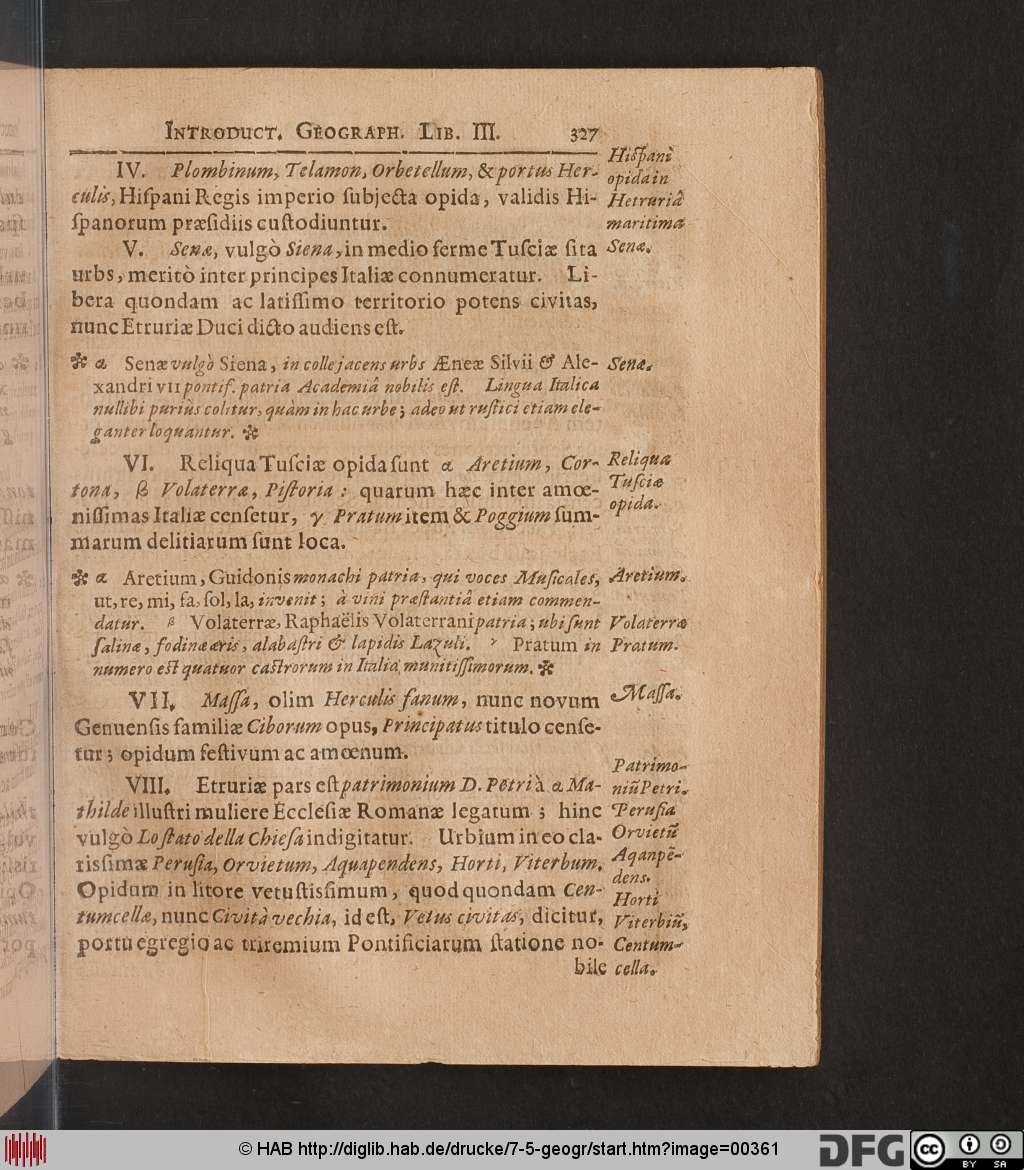 INTRODUCT. GEOGRAPH. LIB. III. 327
IV. Plombinum, Telamon, Orbetellum, & portus Her-
culis, Hiſpani Regis imperio ſubjecta opida, validis Hi-
ſpanorum præſidiis cuſtodiuntur.
Hiſpani
opida in
Hetruriâ
maritima
V. Senæ, vulgò Siena, in medio ferme Tuſciæ ſita
urbs, meritò inter principes Italiæ connumeratur. Li-
bera quondam ac latiſſimo territorio potens civitas,
nunc Etruriæ Duci dicto audiens eſt.
Senæ.
✽ α Senæ vulgò Siena, in colle jacens urbs Æneæ Silvii & Ale-
xandri VII pontif. patria Academiâ nobilis eſt. Lingua Italica
nullibi puriùs colitur, quàm in hac urbe; adeo ut ruſtici etiam ele-
ganter loquantur. ✽
Senæ.
VI. Reliqua Tuſciæ opida ſunt α Aretium, Cor-
tona, β Volaterræ, Piſtoria: quarum hæc inter amœ-
niſſimas Italiæ cenſetur, γ Pratum item & Poggium ſum-
marum delitiarum ſunt loca.
Reliqua
Tuſciæ
opida.
✽ α Aretium, Guidonis monachi patria, qui voces Muſicales,
ut, re, mi, fa, ſol, la, invenit; à vini præſtantiâ etiam commen-
datur. β Volaterræ, Raphaëlis Volaterrani patria; ubi ſunt
ſalinæ, fodinæ æris, alabaſtri & lapidis Lazuli. γ Pratum in
numero eſt quatuor caſtrorum in Italia munitiſſimorum. ✽
Aretium.
Volaterræ
Pratum.
VII. Maſſa, olim Herculis fanum, nunc novum
Genuenſis familiæ Ciborum opus, Principatus titulo cenſe-
tur; opidum feſtivum ac amœnum.
Maſſa.
VIII. Etruriæ pars eſt patrimonium D. Petri à α Ma-
thilde illuſtri muliere Eccleſiæ Romanæ legatum; hinc
vulgò Lo ſtato della Chieſa indigitatur. Urbium in eo cla-
riſſimæ Peruſia, Orvietum, Aquapendens, Horti, Viterbum.
Opidum in litore vetuſtiſſimum, quod quondam Cen-
tumcellæ, nunc Cività vechia, id eſt, Vetus civitas, dicitur,
portu egregio ac triremium Pontificiarum ſtatione no-
bile
Patrimo-
niũ Petri.
Peruſia
Orvietũ
Aqanpẽ-
dens.
Horti
Viterbiũ,
Centum-
cella.
© HAB http://diglib.hab.de/drucke/7-5-geogr/start.htm?image=00361
DFG
cc
BY SA